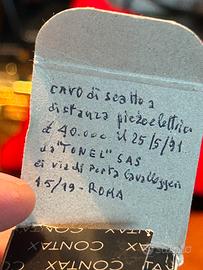 CAVO di scatto a
distanza piezoelettrico
£ 40.000 il 25/5/91
da "TONEL" SAS
di via di Porta Cavalleggeri
15/19 - ROMA
CONTAX
CONTAX